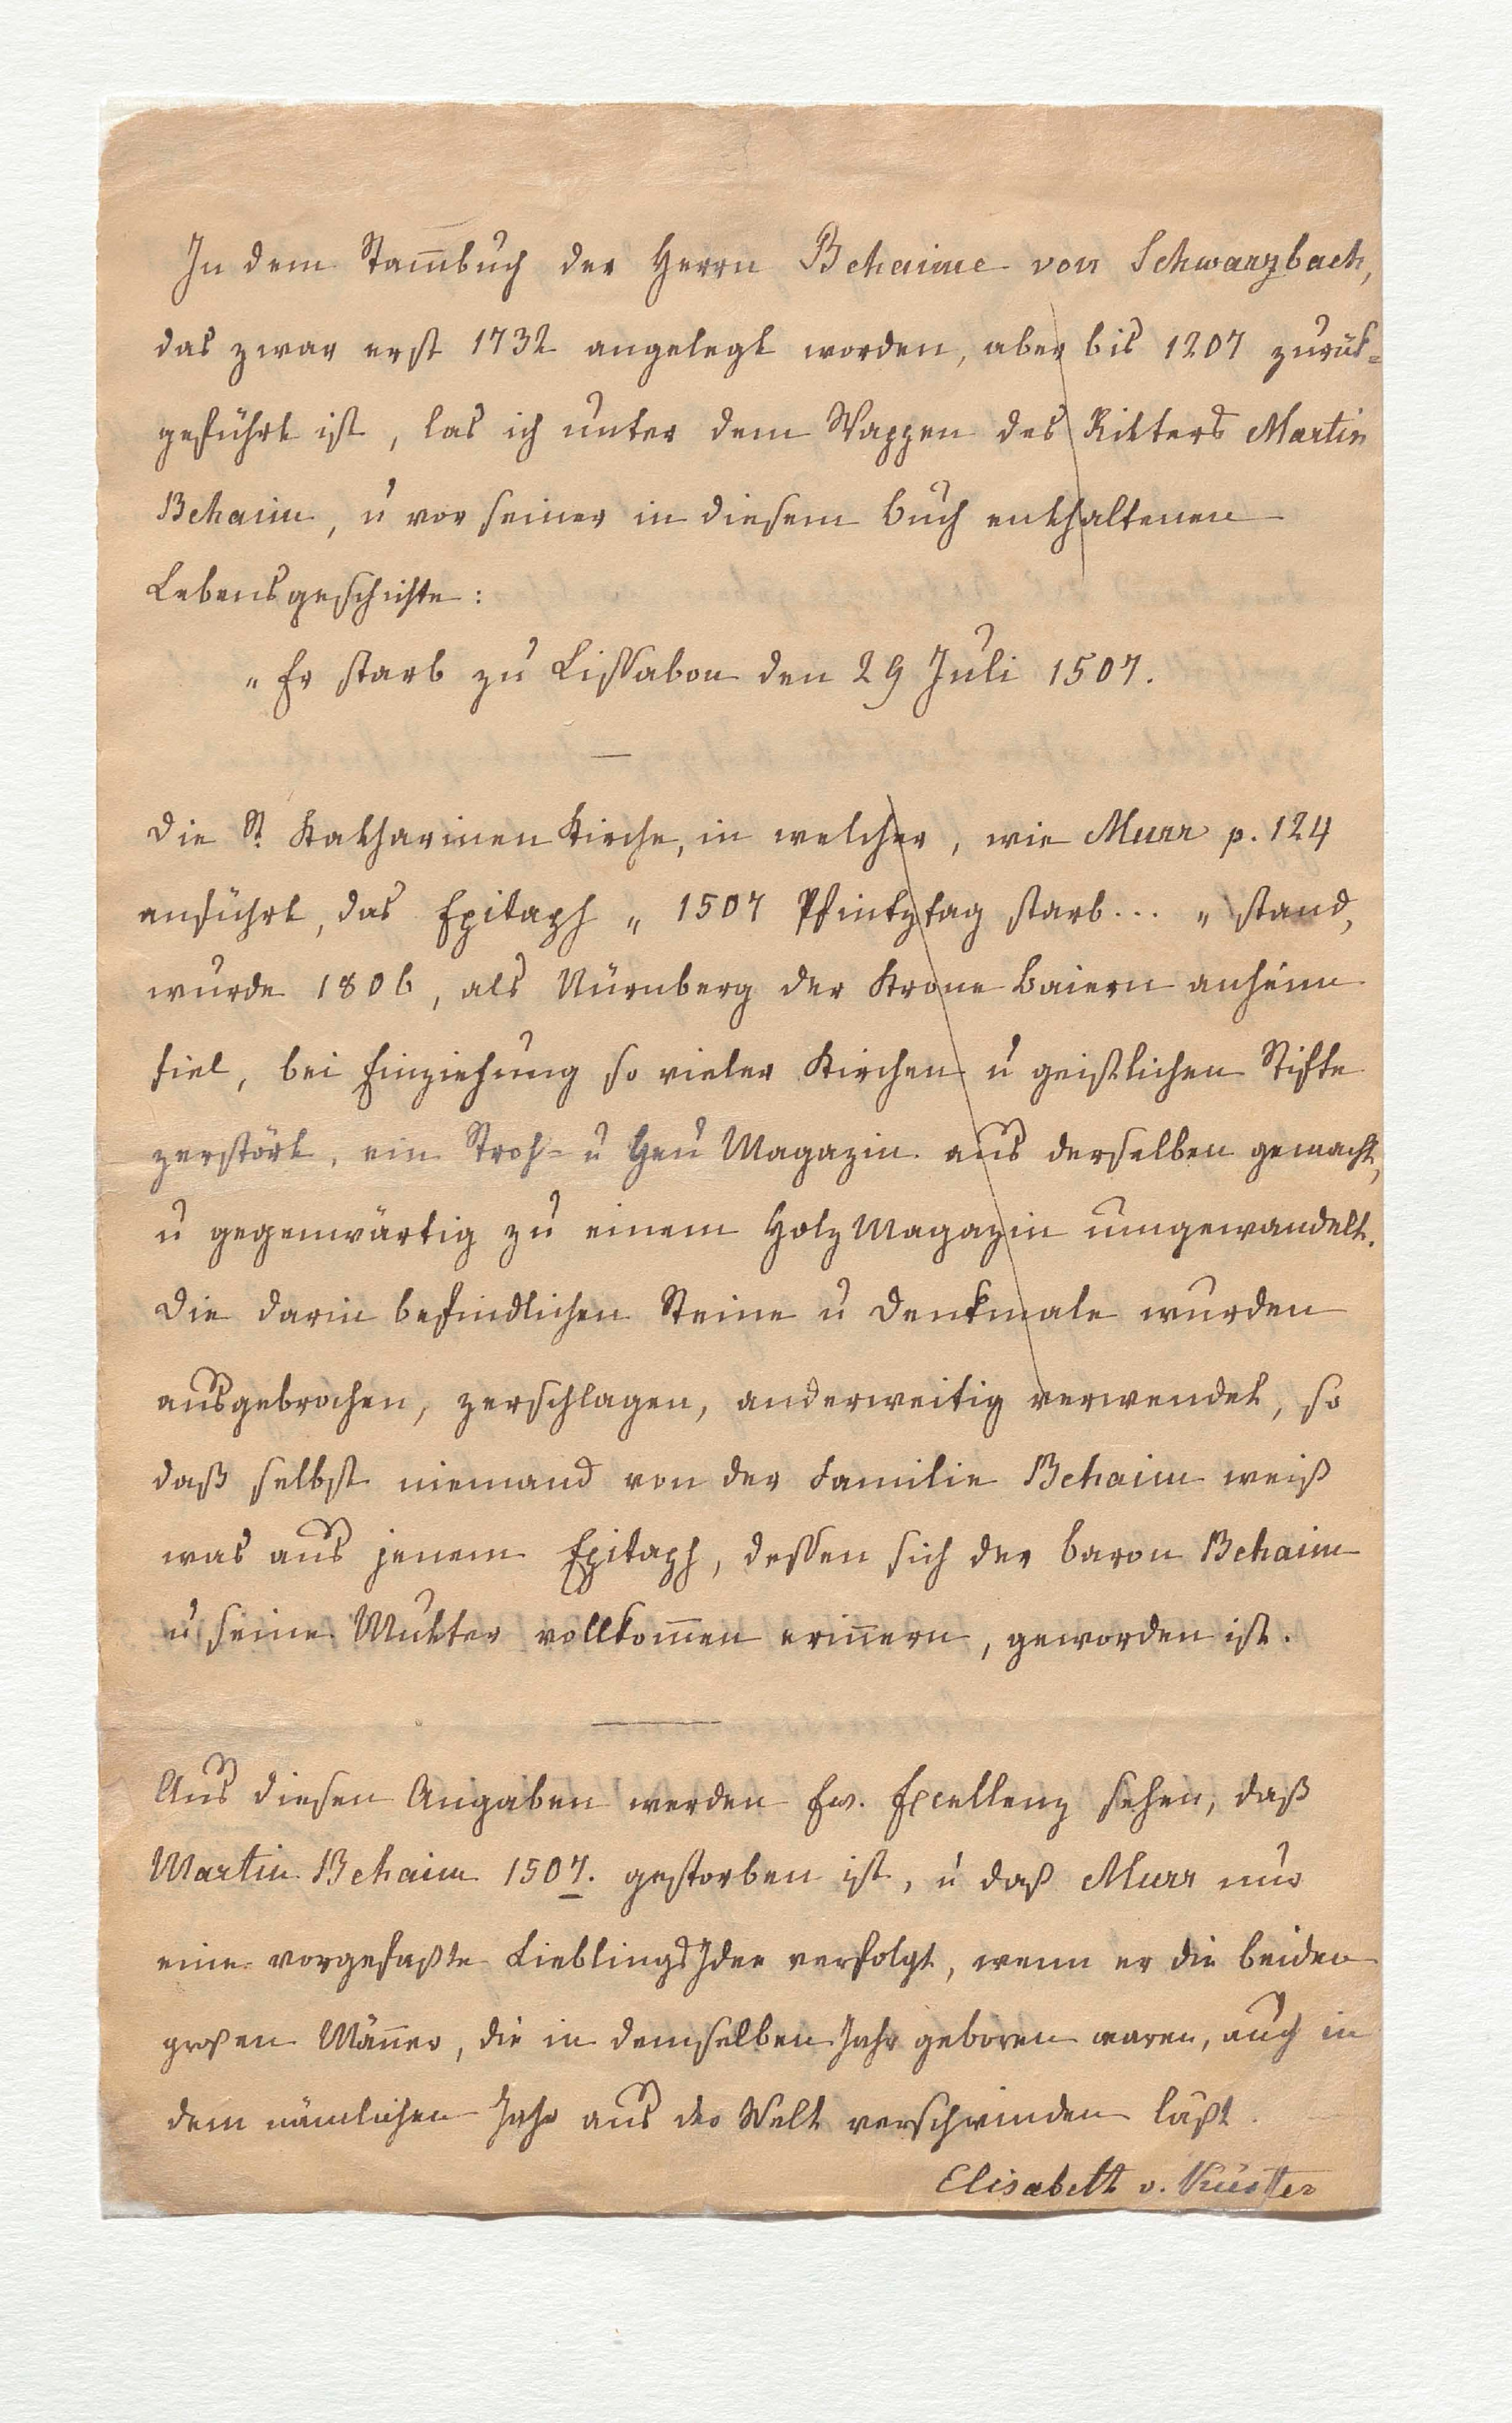 In dem Stam̅buch der Herrn Behaime von Schwarzbach,
das zwar erst 1732 angelegt worden, aber bis 1207 zurük=
geführt ist, las ich unter dem Wappen des Ritters Martin
Behaim, u vor seiner in diesem Buch enthaltenen
Lebensgeschichte:
„Er starb zu Lissabon den 29 Juli 1507.
—
Die St. Katharinen Kirche, in welcher, wie Murr p. 124
anführt, das Epitaph „1507 Pfintztag starb... „ stand,
wurde 1806, als Nürnberg der Krone Baiern anheim
fiel, bei Einziehung so vieler Kirchen u geistlichen Stifte
zerstört, ein Stroh- u Heu Magazin aus derselben gemacht,
u gegenwärtig zu einem Holz Magazin umgewandelt.
Die darin befindlichen Steine u Denkmale wurden
ausgebrochen, zerschlagen, anderweitig verwendet, so
daß selbst niemand von der Familie Behaim weiß
was aus jenem Epitaph, dessen sich der Baron Behaim
u seine Mutter vollkom̅en erin̅ern, geworden ist.
—
Aus diesen Angaben werden Ew. Excellenz sehen, daß
Martin Behaim 1507. gestorben ist, u daß Murr nur
eine vorgefaßte LieblingsIdee verfolgt, wenn er die beiden
großen Män̅er, die in demselben Jahr geboren waren, auch in
dem nämlichen Jahr aus der Welt verschwinden läßt.
Elisabeth v. Küster